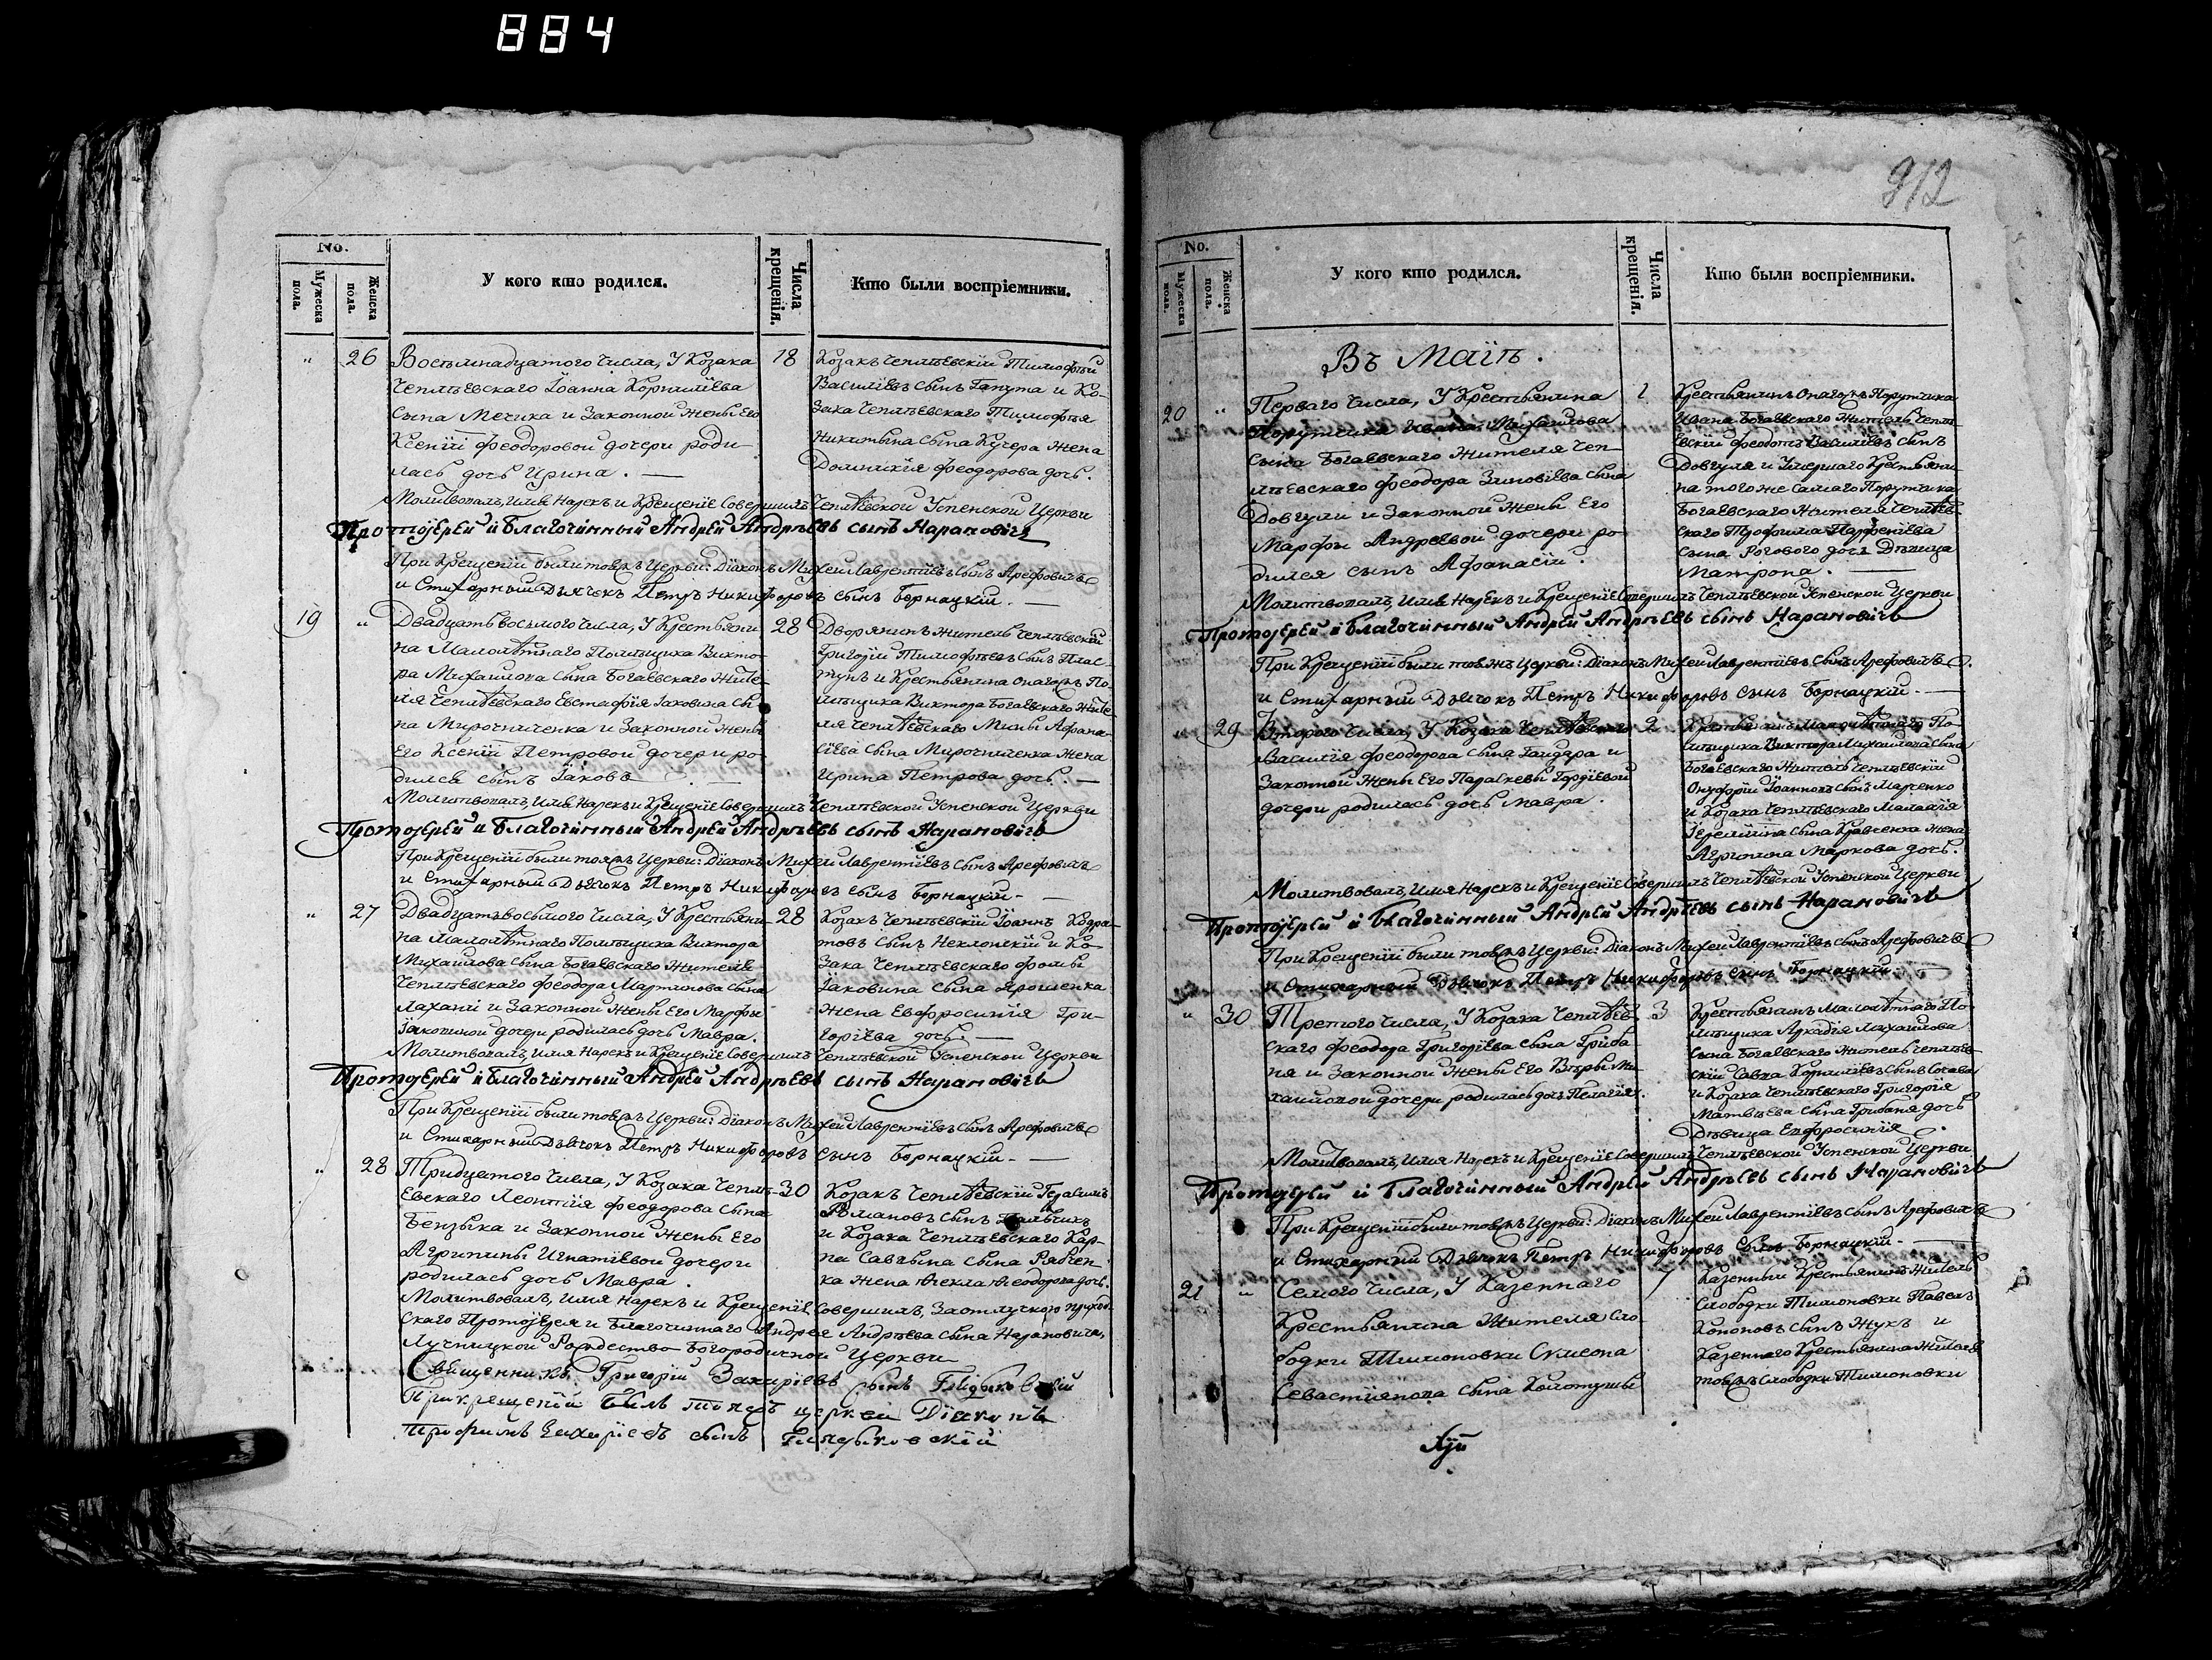 884
912
No.
Мужеска пола.
Женска пола.
У кого кто родился.
Числа крещенія.
Кто были воспріемники.
" 26
Восѣмнадцатого Числа, У Козака
Чеплѣевскаго Іоанна Корнилїева
Сына Мечика и Законной Жены Его
Ксенїи Феодоровой дочери роди-
лась дочь Ирина. —
18
Козакъ Чеплѣевскїй Тимофѣй
Василїевъ сынъ Гапута и Ко-
зака Чеплѣевскаго Тимофѣя
Никитина сына Кучера Жена
Домникїя Феодорова дочь.
Молитвовалъ, Имя Нарекъ и Крещенїе Совершилъ Чеплѣевской Успенской Церкви
Протоїерей и Благочинный Андрей Андрѣевъ сынъ Нарановичъ
При Крещенїи были тояжъ Церкви: Дїаконъ Михей Лаврентїевъ сынъ Арефовичъ
и Стихарный Дьячокъ Петръ Никифоровъ сынъ Борнацкїй. —
19 "
Двадцать восьмого Числа, У Крестьяни-
на Малолѣтнаго Помѣщика Викто-
ра Михаилова сына Богаевскаго Жите-
ля Чеплѣевскаго Евстафїя Іаковина Сы-
на Мирочниченка и Законной Жены
Его Ксенїи Петровой дочери ро-
дился сынъ Іаковъ.
28
Дворянинъ Житель Чеплѣевскїй
Григорїй Тимофѣевъ сынъ Плас-
тунъ и Крестьянина онагожъ По-
мѣщика Виктора Богаевскаго Жите-
ля Чеплѣевскаго Мины Афана-
сїева сына Мирочниченка Жена
Ирина Петрова дочь. —
Молитвовалъ, Имя Нарекъ и Крещенїе Совершилъ Чеплѣевской Успенской Церкви
Протоїерей и Благочинный Андрей Андрѣевъ сынъ Нарановичъ
При Крещенїи были тояжъ Церкви: Дїаконъ Михей Лаврентїевъ сынъ Арефовичъ
и Стихарный Дьячокъ Петръ Никифоровъ сынъ Борнацкїй. —
" 27
Двадцать восьмого Числа, У Крестьяни-
на Малолѣтнаго Помѣщика Виктора
Михаилова сына Богаевскаго Жителя
Чеплѣевскаго Феодора Мартинова сына
Лахани и Законной Жены Его Марфы
Іаковиной дочери родилась дочь Мавра.
28
Козакъ Чеплѣевскїй Іоаннъ Кодра-
товъ сынъ Неклонскїй и Ко-
зака Чеплѣевскаго Фомы
Іаковина сына Ярошенка
Жена Евфросинїя Гри-
горїева дочь. —
Молитвовалъ, Имя Нарекъ и Крещенїе Совершилъ Чеплѣевской Успенской Церкви
Протоїерей и Благочинный Андрей Андрѣевъ сынъ Нарановичъ
При Крещенїи были тояжъ Церкви: Дїаконъ Михей Лаврентїевъ сынъ Арефовичъ
и Стихарный Дьячокъ Петръ Никифоровъ сынъ Борнацкїй. —
" 28
Тридцатого Числа, У Козака Чеплѣ-
евскаго Леонтїя Феодорова сына
Бензыка и Законной Жены Его
Агрипины Игнатїевой дочери
родилась дочь Мавра.
30
Козакъ Чеплѣевскїй Герасимъ
Романовъ сынъ
и Козака Чеплѣевскаго Кар-
па Саввина сына Рабчен-
ка жена Ѳекла Ѳеодорова дочь.
Молитвовалъ, Имя Нарекъ и Крещенїе Совершилъ, За отлучкою приход-
скаго Протоїерея и Благочиннаго Андрея Андрѣева сына Нарановича,
Лучницкой Рождество Богородичной Церкви
Священникъ Григорїй Захарїевъ сынъ
При крещенїи былъ тояжъ церкви Дїаконъ
Трофимъ Захарїевъ сынъ
No.
Мужеска пола.
Женска пола.
У кого кто родился.
Числа крещенія.
Кто были воспріемники.
Въ Маїѣ.
20 "
Перваго Числа, У Крестьянина
Порутчика Ивана Михаилова
сына Богаевскаго Жителя Чеп-
лѣевскаго Феодора Зиновїева сына
Довгули и Законной Жены Его
Марфы Андреевой дочери ро-
дился сынъ Афанасїй.
1
Крестьянинъ Онагожъ Порутчика
Ивана Богаевскаго Житель Чеплѣ-
евскїй Феодотъ Василїевъ сынъ
Довгуля и Умершаго Крестьяни-
на того же самаго Порутчика
Богаевскаго Жителя Чеплѣев-
скаго Трофима Парфенїева
сына Рогового дочь Дѣвица
Матрона. —
Молитвовалъ, Имя Нарекъ и Крещенїе Совершилъ Чеплѣевской Успенской Церкви
Протоїерей и Благочинный Андрей Андрѣевъ сынъ Нарановичъ
При Крещенїи были тояжъ Церкви: Дїаконъ Михей Лаврентїевъ сынъ Арефовичъ.
и Стихарный Дьячокъ Петръ Никифоровъ сынъ Борнацкїй. —
" 29
Второго Числа, У Козака Чеплѣевскаго
Василїя Феодорова сына Гайдара и
Законной Жены Его Параскевы Гордїевой
дочери родилась дочь Мавра.
2
Крестьянинъ Малолѣтнаго По-
мѣщика Виктора Михаилова сына
Богаевскаго Житель Чеплѣевскїй
Онуфрїй Іоанновъ сынъ Марченко
и Козака Чеплѣевскаго Малахїя
Іеремїина сына Кравченка жена
Агрипина Маркова дочь.
Молитвовалъ, Имя Нарекъ и Крещенїе Совершилъ Чеплѣевской Успенской Церкви
Протоїерей и Благочинный Андрей Андрѣевъ сынъ Нарановичъ
При Крещенїи были тояжъ Церкви: Дїаконъ Михей Лаврентїевъ сынъ Арефовичъ
и Стихарный Дьячокъ Петръ Никифоровъ сынъ Борнацкїй. —
" 30
Третого Числа, У Козака Чеплѣев-
скаго Феодора Григорїева сына Гриба-
ня и Законной Жены Его Вѣры Ми-
хаиловой дочери родилась дочь Пелагїя.
3
Крестьянинъ Малолѣтнаго По-
мѣщика Аркадїя Михаилова
сына Богаевскаго Житель Чеплѣев-
скїй Савва Корнилїевъ сынъ
и Козака Чеплѣевскаго Григорїя
Матвѣева сына Грибаня дочь
Дѣвица Евфросинїя.
Молитвовалъ, Имя Нарекъ и Крещенїе Совершилъ Чеплѣевской Успенской Церкви
Протоїерей и Благочинный Андрей Андрѣевъ сынъ Нарановичъ
При Крещенїи были тояжъ Церкви: Дїаконъ Михей Лаврентїевъ сынъ Арефовичъ
и Стихарный Дьячокъ Петръ Никифоровъ сынъ Борнацкїй. —
21 "
Семого Числа, У Казеннаго
Крестьянина Жителя Сло-
бодки Тимоновки Сумеона
Севастїянова сына Колотуши
7
Казенный Крестьянинъ Житель
Слободки Тимоновки Павелъ
Кононовъ сынъ Жукъ и
Казеннаго Крестьянина Жителя
тояжъ Слободки Тимоновки